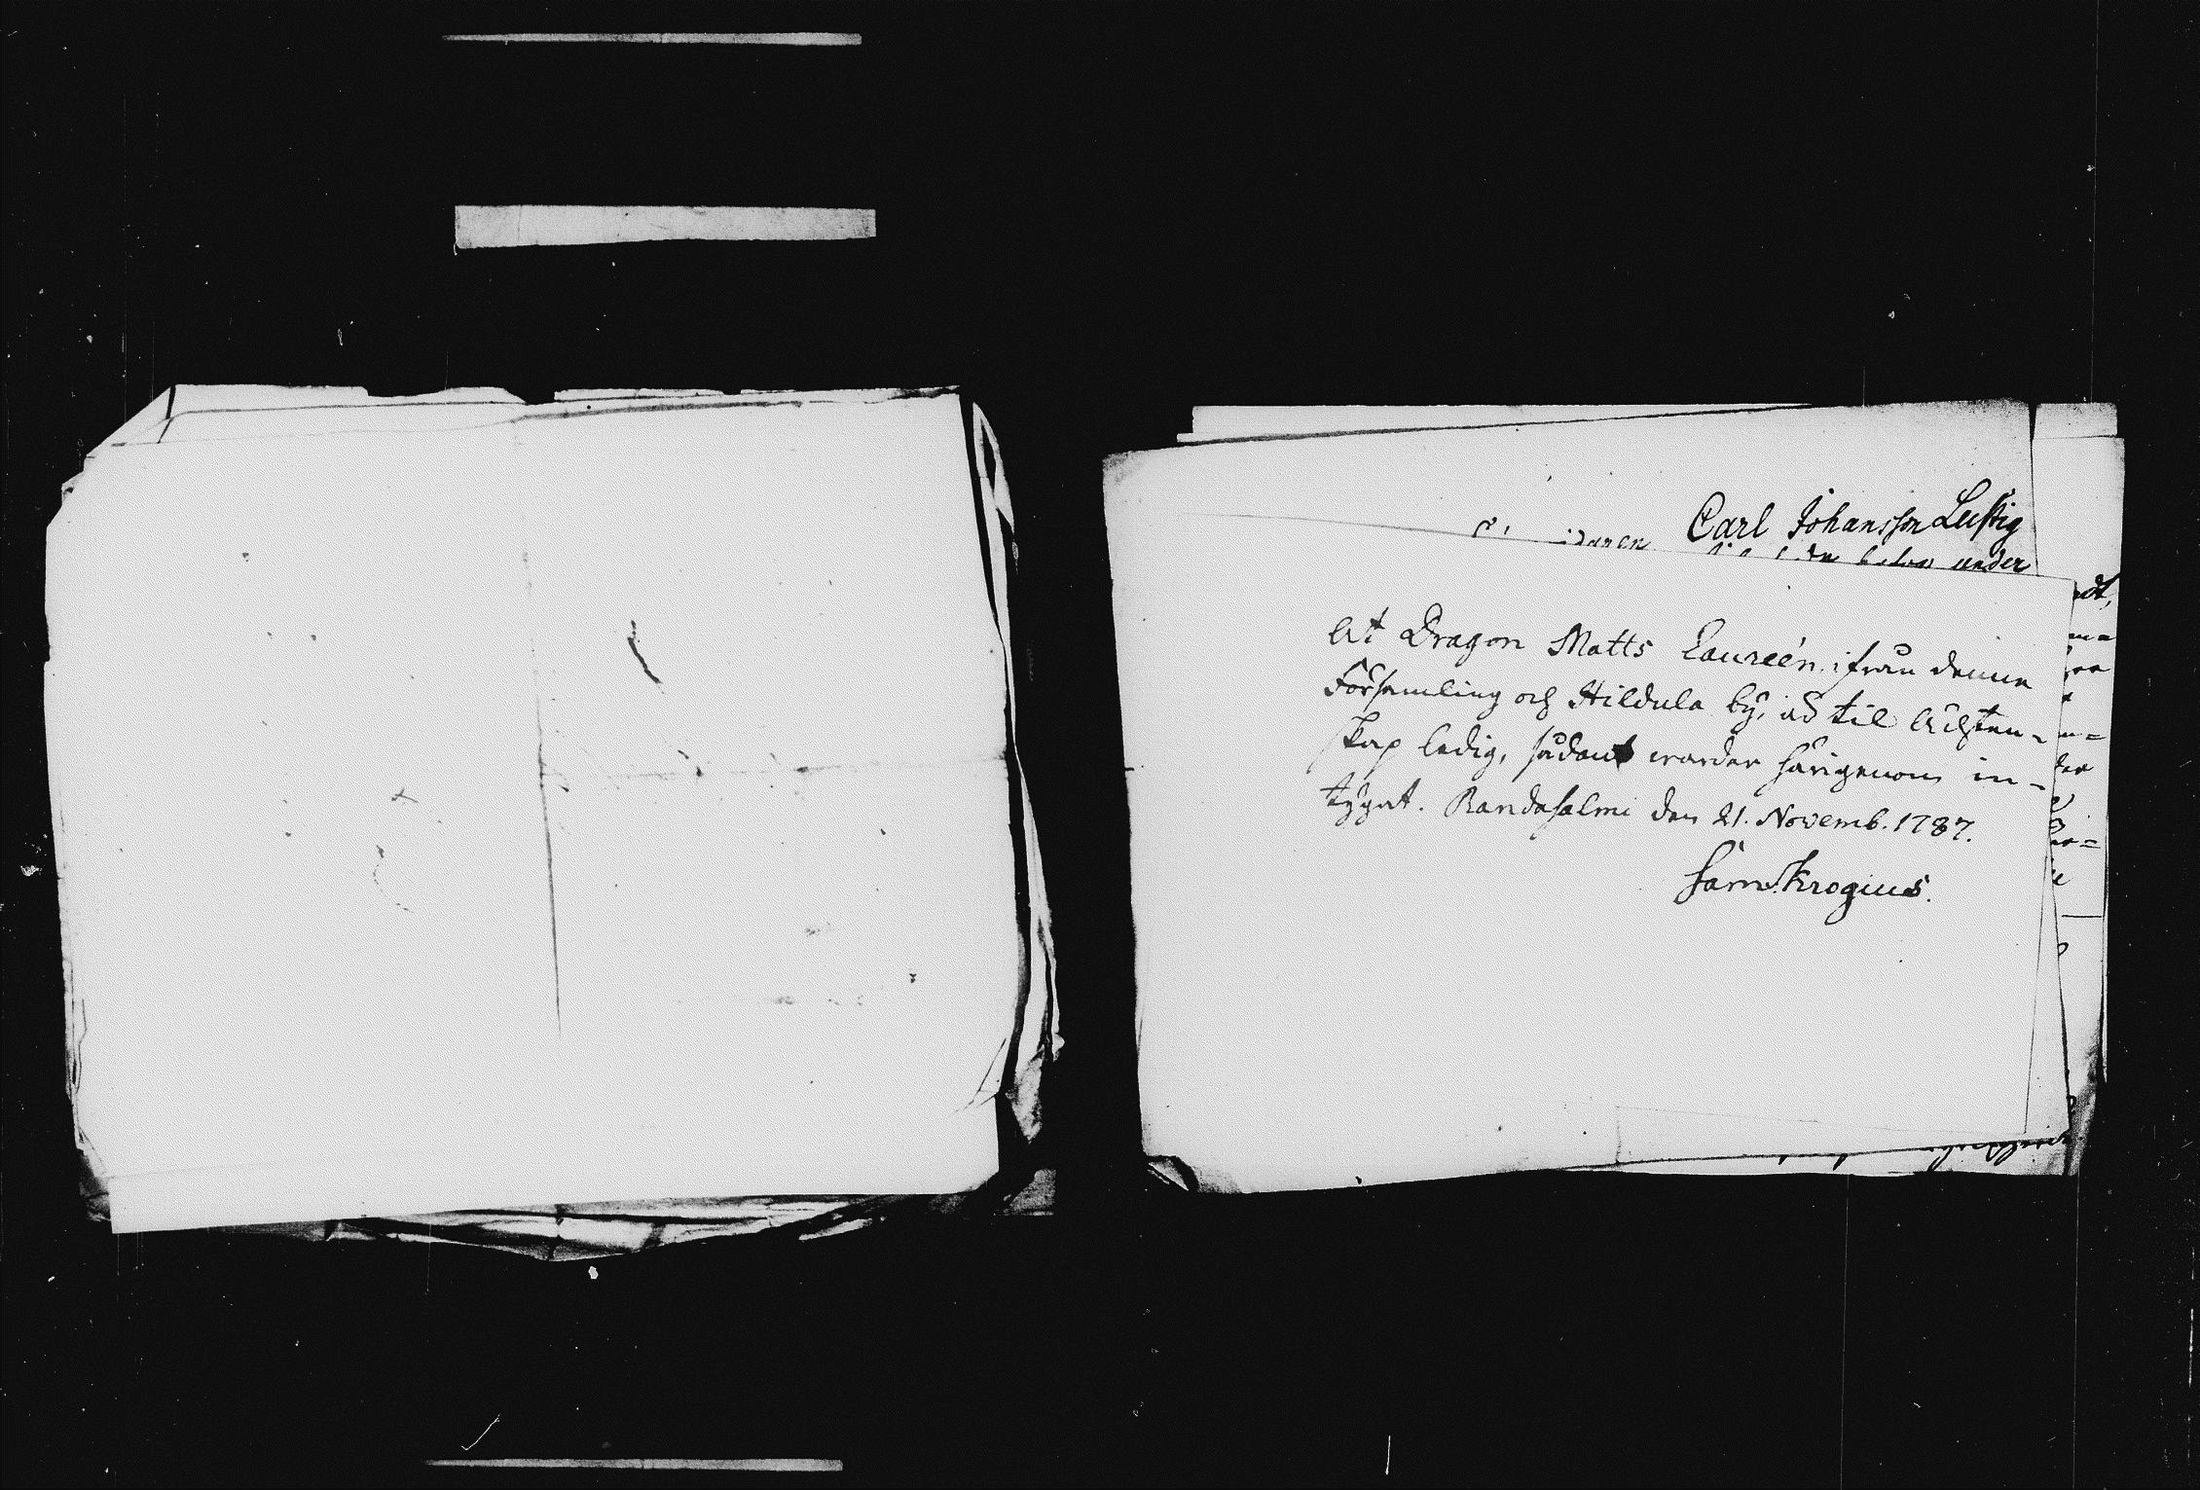 Carl Johansson Lustig
under
At Dragon Matts Laureén ifrån denna
Församling och Hildula by, är til ächten-
skap ledig, sådant warder härigenom in-
tygat. Randasalmi den 21. Novemb. 1787.
Sam. Krogius.